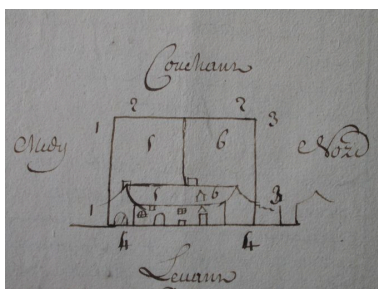 Couchann
2 2
1 3
5 6
Midy Nord
5 6
1 3
4 4
Levann